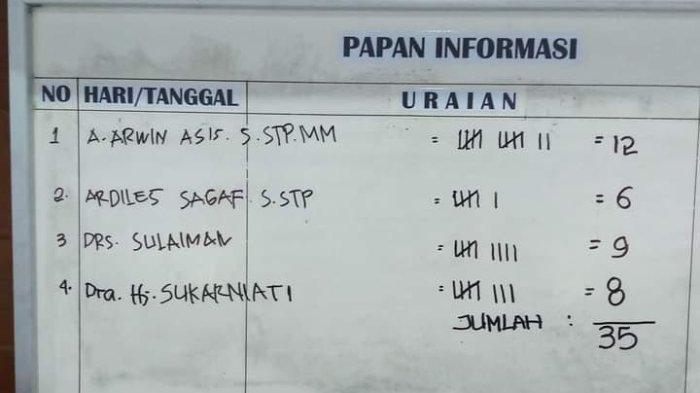 PAPAN INFORMASI
NO HARI/TANGGAL URAIAN
1 A. ARWIN ASIS. S.STP.MM = 卌 卌 II = 12
2. ARDILES SAGAF. S.STP = 卌 I = 6
3 DRS. SULAIMAN = 卌 IIII = 9
4. Dra. Hj. SUKARNIATI = 卌 III = 8
JUMLAH : 35